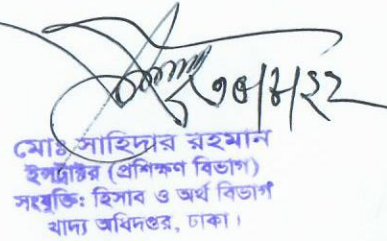 মোঃ সাহিদার রহমান
ইন্সট্রাক্টর (প্রশিক্ষণ বিভাগ)
সংযুক্তি: হিসাব ও অর্থ বিভাগ
খাদ্য অধিদপ্তর, ঢাকা।